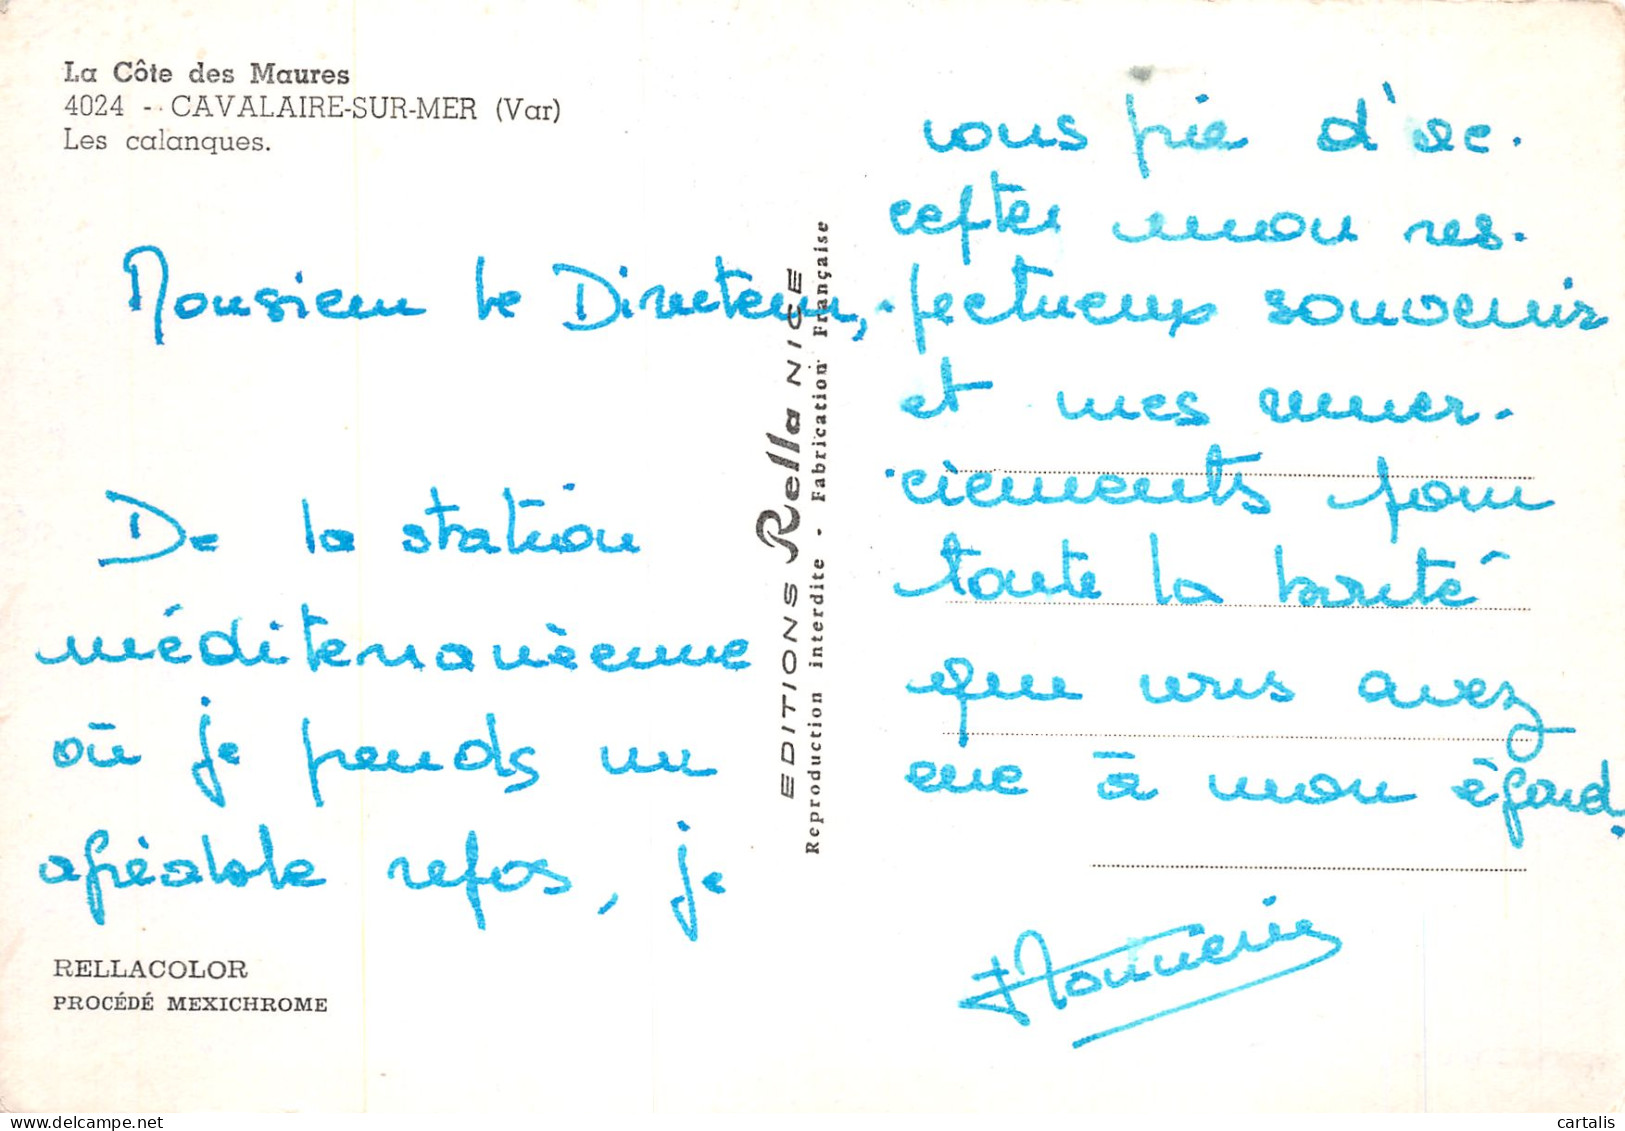 La Côte des Maures
4024 - CAVALAIRE-SUR-MER (Var)
Les calanques.
Monsieur le Directeur,
De la station
méditerranéenne
où je prends un
agréable repos, je
RELLACOLOR
PROCÉDÉ MEXICHROME
EDITIONS Rella NICE
Reproduction interdite - Fabrication Française
vous prie d'ac-
cepter mon res-
-pectueux souvenir
et mes remer-
-ciements pour
toute la bonté
que vous avez
eue à mon égard.
cartalis
delcampe.net